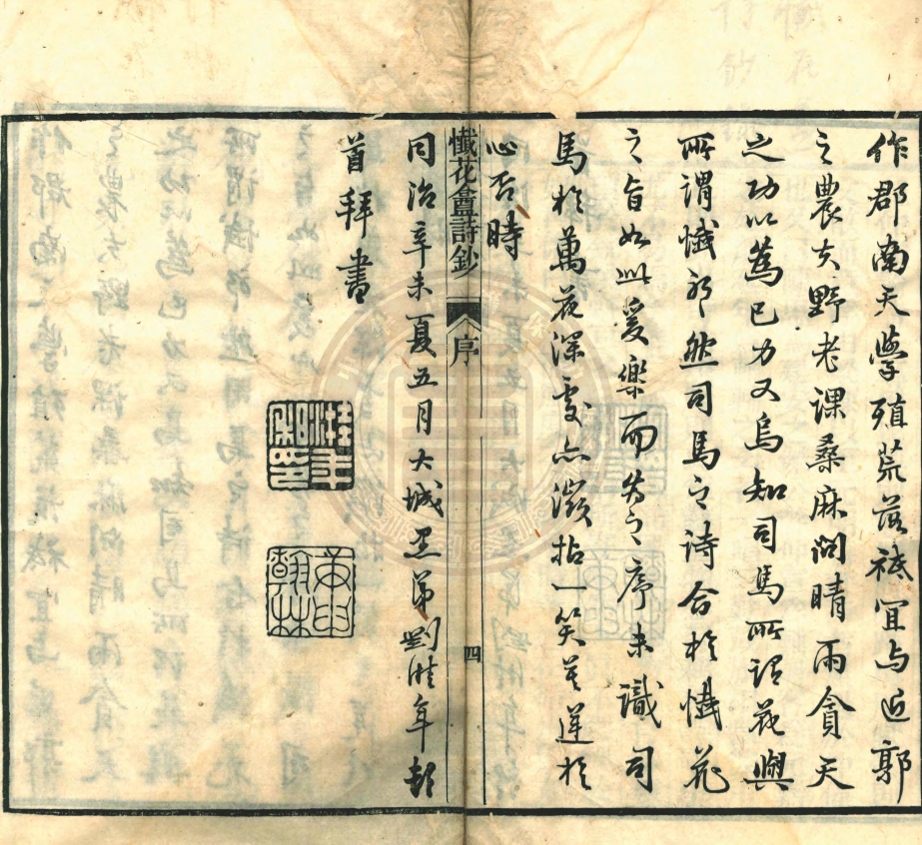 作郡南天學殖荒落祗宜与近郭
之農夫野老課桑麻問晴雨貪天
之功以為己力又烏知司馬所謂花與
所謂懺邪然司馬之詩合於懺花
之旨如此爰樂而為之序未識司
馬於萬花深處亦拈一笑蓮於
心否時
懺花盦詩鈔
序
四
同治辛未夏五月大城愚弟劉溎年頓
首拜書
溎年私印
庚申翰林